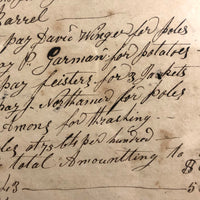 Barrel
pay David Winger for poles
pay P. Garman for potatoes
pay Leisters for 3 Jackets
pay J. Nothamer for poles
Amons for thrashing
les at 75 cts per hundred
total Amountting to $
43
5